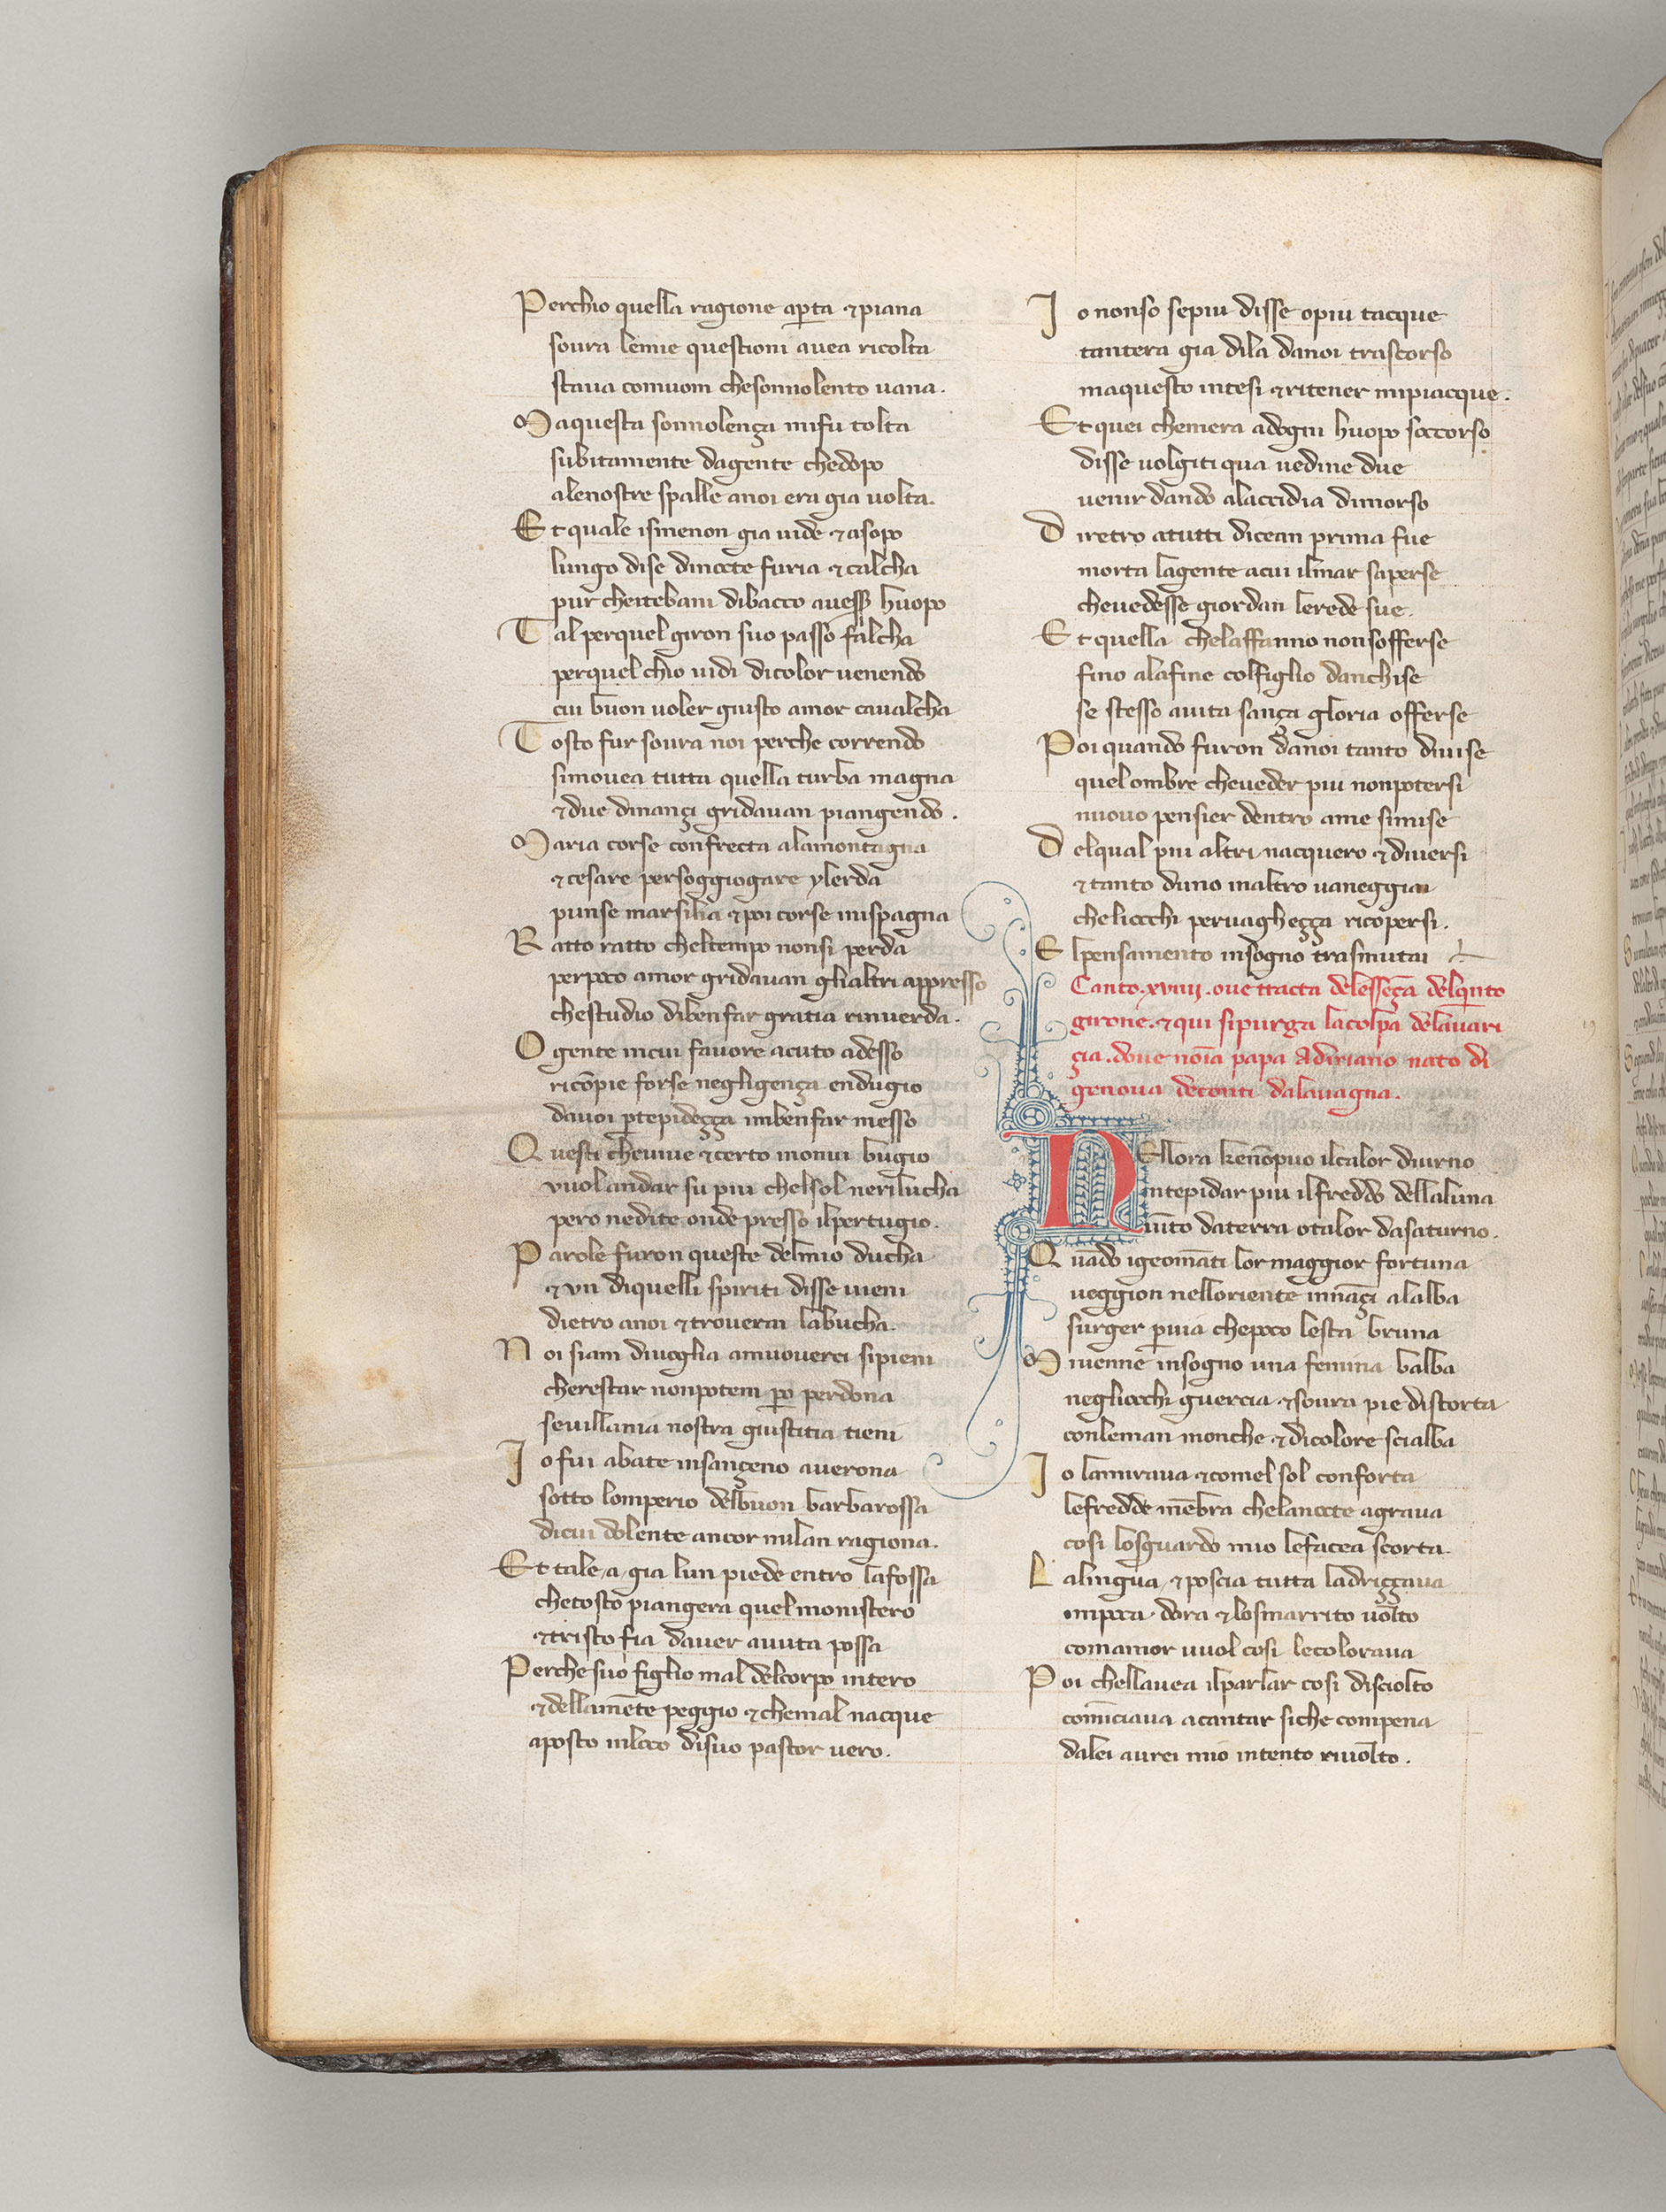 Perchio quella ragione aꝑta ⁊piana
soura lemie questioni auea ricolta
staua comuom chesonnolento uana.
Maquesta sonnolença mifu tolta
subitamente dagente chedopo
alenostre spalle anoi era gia uolta.
Et quale ismenon gia uide ⁊asopo
lungo dise dinocte furia ⁊calcha
pur cheitebani dibacco auesser huopo
Tal perquel giron suo passo falcha
perquel chio uidi dicolor uenendo
cui buon uoler giusto amor caualcha
Tosto fur soura noi perche correndo
simouea tutta quella turba magna
⁊due dinançi gridauan piangendo.
Maria corse confrecta alamontagna
⁊cesare persoggiogare ylerda
punse marsilia ⁊poi corse inispagna
Ratto ratto cheltempo nonsi perda
perpoco amor gridauan glialtri appresso
chestudio dibenfar gratia rinuerda.
O gente incui fauore acuto adesso
ricōpie forse negligença endugio
dauoi ꝑtepideçça inbenfar messo
Questi cheuiue ⁊certo inonui bugio
vuolandar su piu chelsol nerilucha
pero nedite onde presso ilpertugio.
Parole furon queste delmio ducha
⁊vn diquelli spiriti disse uieni
dietro anoi ⁊trouerai labucha.
Noi siam diuoglia amuouerci sipieni
cherestar nonpotem ꝑo perdona
seuillania nostra giustitia tieni
Io fui abate insançeno auerona
sotto lomperio delbuon barbarossa
dicui dolente ancor milan ragiona.
Et tale a gia lun piede entro lafossa
chetosto piangera quel monistero
⁊tristo fia dauer auuta possa
Perche suo figlio mal delcorpo intero
⁊dellamēte peggio ⁊chemal nacque
aposto inloco disuo pastor uero.
Io nonso sepiu disse opiu tacque
tantera gia dila danoi trascorso
maquesto intesi ⁊ritener mipiacque.
Et quei chemera adogni huopo soccorso
disse uolgiti qua uedine due
uenir dando alaccidia dimorso
Diretro atutti dicean prima fue
morta lagente acui ilmar saperse
cheuedesse giordan lerede sue.
Et quella chelaffanno nonsofferse
fino alafine colfiglio danchise
se stesso auita sança gloria offerse
Poi quando furon danoi tanto diuise
quelombre cheueder piu nonpotersi
nuouo pensier dentro ame simise
Delqual piu altri nacquero ⁊diuersi
⁊tanto duno inaltro uaneggiai
cheliocchi peruagheçça ricopersi.
Elpensamento insogno trasmutai
Canto.xviiij.oue tracta delessēça delqinto
girone.⁊qui sipurga lacolpa delauari
çia.doue noīa papa Adiriano nato di
genoua deconti dalauagna.
NEllora kenōpuo ilcalor diurno
intepidar piu ilfreddo dellaluna
uīto daterra otalor dasaturno.
Quādo igeomāti lor maggior fortuna
ueggion nelloriente innāçi alalba
surger ꝑuia chepoco lesta bruna
Miuenne insogno una femina balba
negliocchi guercia ⁊soura pie distorta
conleman monche ⁊dicolore scialba
Io lamiraua ⁊comel sol conforta
lefredde mēbra chelanocte agraua
cosi losguardo mio lefacea scorta.
Lalingua ⁊poscia tutta ladriççaua
inpoca dora ⁊losmarrito uolto
comamor vuol cosi lecoloraua
Poi chellauea ilparlar cosi disciolto
comīciaua acantar siche compena
dalei aurei mio intento riuolto.